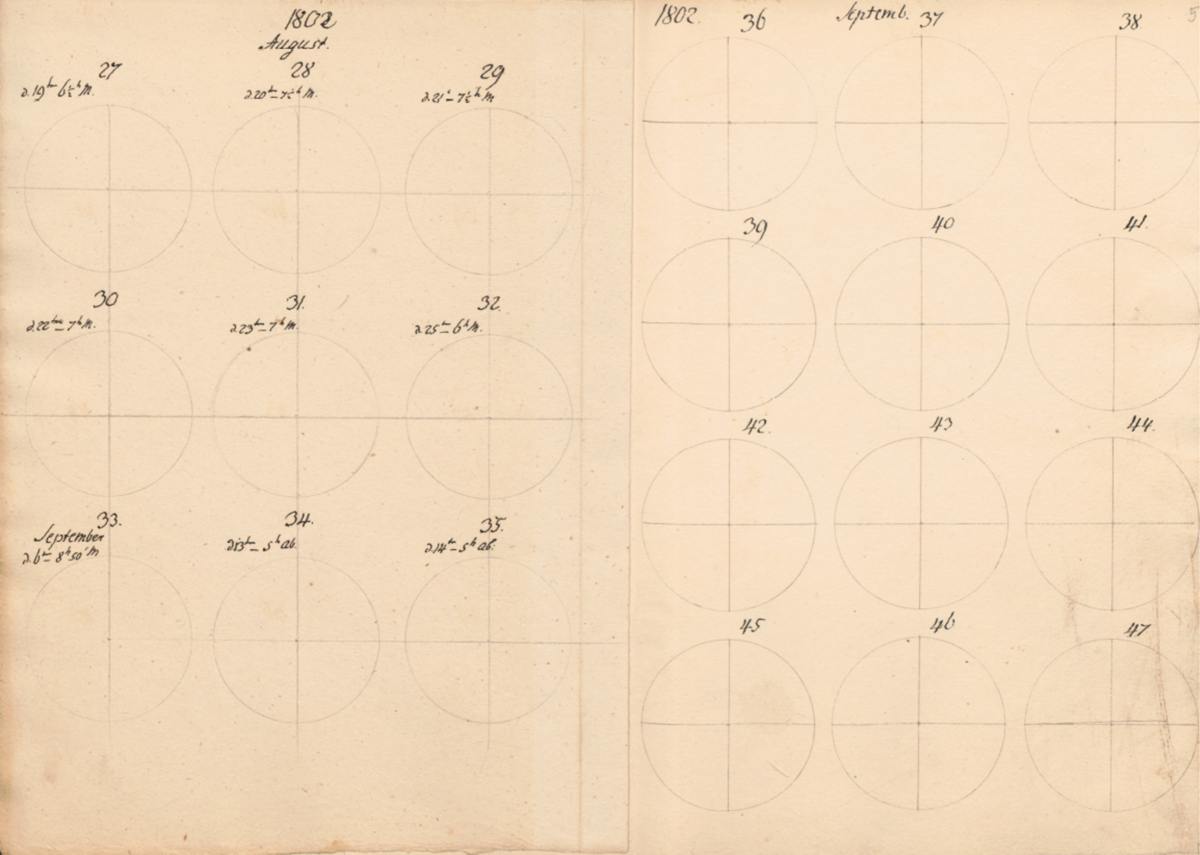 1802
August.
27
d. 19ten 6½h M.
28
d. 20ten 7½h M.
29
d. 21t 7½h M
30
d. 22ten 7h M.
31.
d. 23ten 7h M.
32.
d. 25ten 6h M.
33.
September
d. 6ten 8h 50' M
34.
d 13ten 5h ab.
35.
d. 14ten 5h ab.
1802. 36 Septemb. 37 38 5
39 40 41.
42. 43 44.
45 46 47